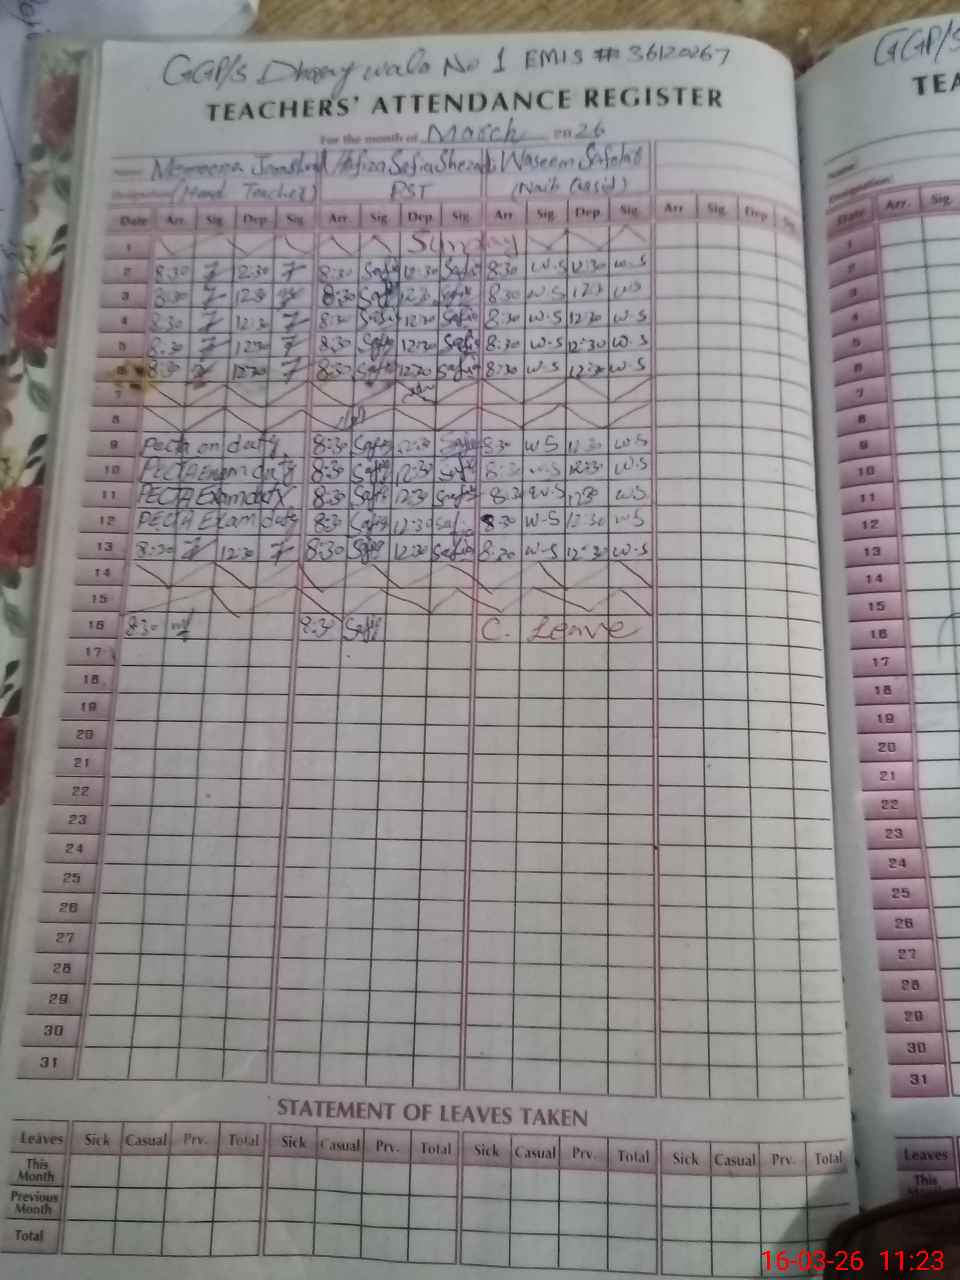 GGP/S Dhopay wala No 1 EMIS # 36120267
TEACHERS' ATTENDANCE REGISTER
For the month of March 2026
Name Hafiza Safia Shezadi Waseem Safdar
Designation (Head Teacher) PST (Naib Qasid)
Date Arr. Sig. Dep. Sig. Arr. Sig. Dep. Sig. Arr Sig. Dep. Sig. Arr Sig. Dep Sig.
1 Sunday
2 8:30 12:30 8:30 Safia 12:30 Safia 8:30 W.S 12:30 W.S
3 8:30 12:30 8:30 Safia 12:30 Safia 8:30 W.S 12:30 W.S
4 8:30 12:30 8:30 Safia 12:30 Safia 8:30 W.S 12:30 W.S
5 8:30 12:30 8:30 Safia 12:30 Safia 8:30 W.S 12:30 W.S
6 8:30 12:30 8:30 Safia 12:30 Safia 8:30 W.S 12:30 W.S
7
8
9 Pecta on duty 8:30 Safia 12:30 Safia 8:30 W.S 12:30 W.S
10 PECTA Exam duty 8:30 Safia 12:30 Safia 8:30 W.S 12:30 W.S
11 PECTA Exam duty 8:30 Safia 12:30 Safia 8:30 W.S 12:30 W.S
12 PECTA Exam duty 8:30 Safia 12:30 Safia 8:30 W.S 12:30 W.S
13 8:30 12:30 8:30 Safia 12:30 Safia 8:30 W.S 12:30 W.S
14
15
16 8:30 8:30 Safia C. Leave
17
18
19
20
21
22
23
24
25
26
27
28
29
30
31
STATEMENT OF LEAVES TAKEN
Leaves Sick Casual Prv. Total Sick Casual Prv. Total Sick Casual Prv. Total Sick Casual Prv. Total
This Month
Previous Month
Total
GGP/S
TEA
Name
Designation
Date Arr. Sig.
1
2
3
4
5
6
7
8
9
10
11
12
13
14
15
16
17
18
19
20
21
22
23
24
25
26
27
28
29
30
31
Leaves
This Month
16-03-26 11:23